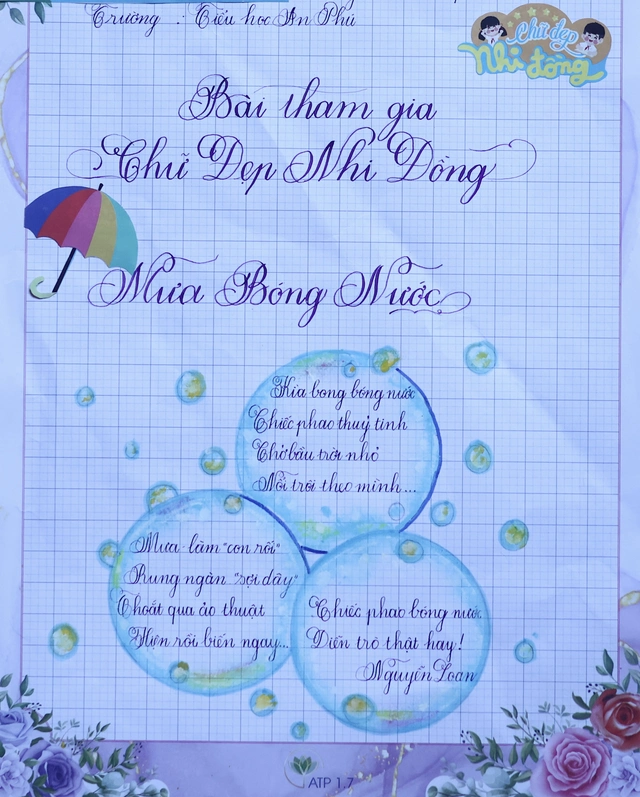 Trường : Tiểu học An Phú
Chữ đẹp
Nhi đồng
Bài tham gia
Chữ Đẹp Nhi Đồng
Mưa Bóng Nước
Kìa bong bóng nước
Chiếc phao thuỷ tinh
Chở bầu trời nhỏ
Nổi trôi theo mình...
Mưa làm "con rối"
Rung ngàn "sợi dây"
Thoắt qua ảo thuật
Hiện rồi biến ngay...
Chiếc phao bóng nước
Diễn trò thật hay!
Nguyễn Loan
ATP 1.7